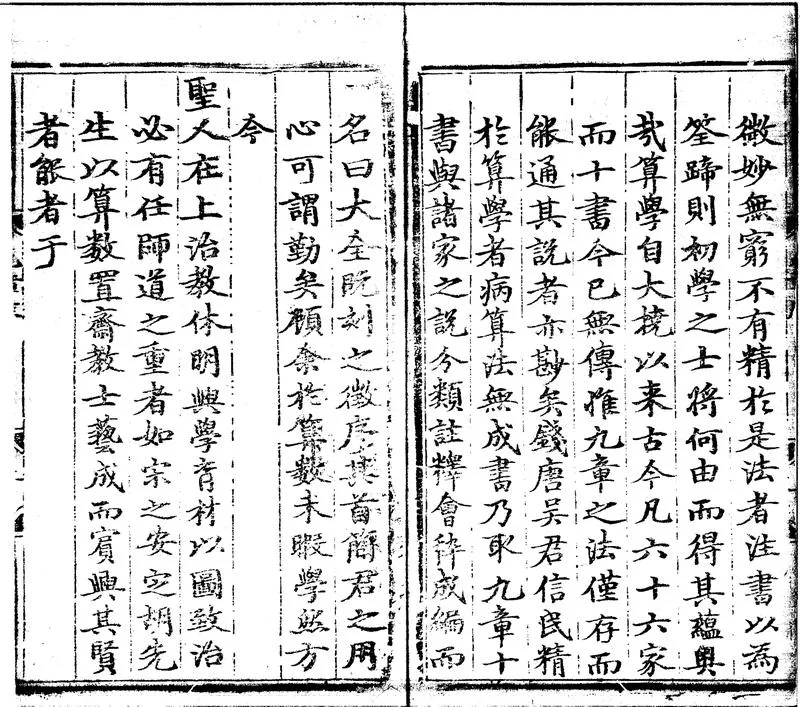 微妙無窮不有精於是法者注書以為
筌蹄則初學之士將何由而得其蘊奥
㢤算學自大撓以来古今凡六十六家
而十書今已無傳惟九章之法僅存而
能通其說者亦尠矣錢唐吴君信民精
於算學者病算法無成書乃取九章十
書與諸家之説分類註釋會稡成編而
名曰大全既刻之徵序其首簡君之用
心可謂勤矣顧余於算數未暇學然方
今
聖人在上治教休明興學育材以圖致治
必有任師道之重者如宋之安定胡先
生以算数置齋教士藝成而賓興其賢
者能者于